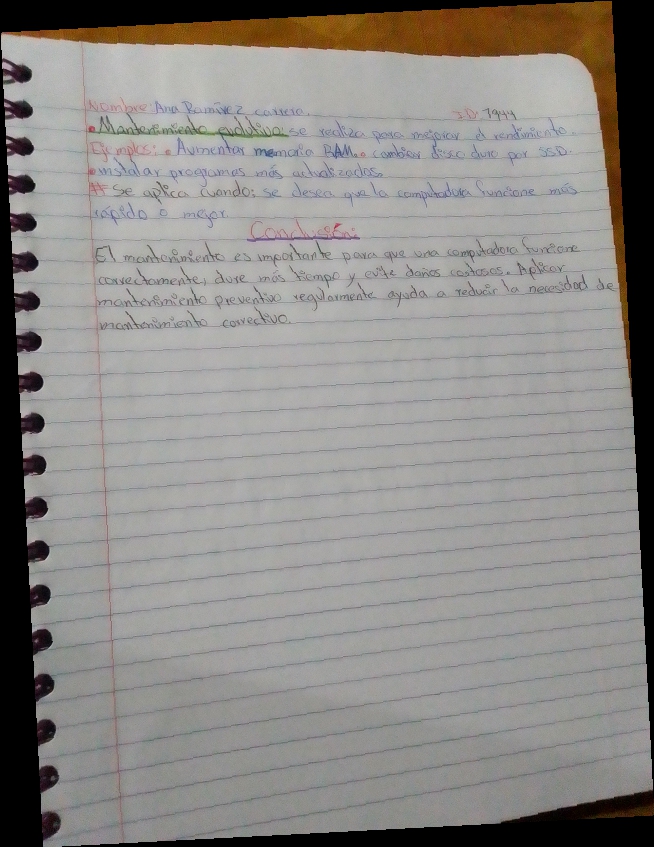 Nombre: Ana Ramírez carrera. ID: 7944
• Mantenimiento evolutivo: se realiza para mejorar el rendimiento.
Ejemplos: • Aumentar memoria RAM. • cambiar disco duro por SSD.
• instalar programas más actualizados.
# se aplica cuando: se desea que la computadora funcione más
rápido o mejor.
Conclusión:
El mantenimiento es importante para que una computadora funcione
correctamente, dure más tiempo y evite daños costosos. Aplicar
mantenimiento preventivo regularmente ayuda a reducir la necesidad de
mantenimiento correctivo.